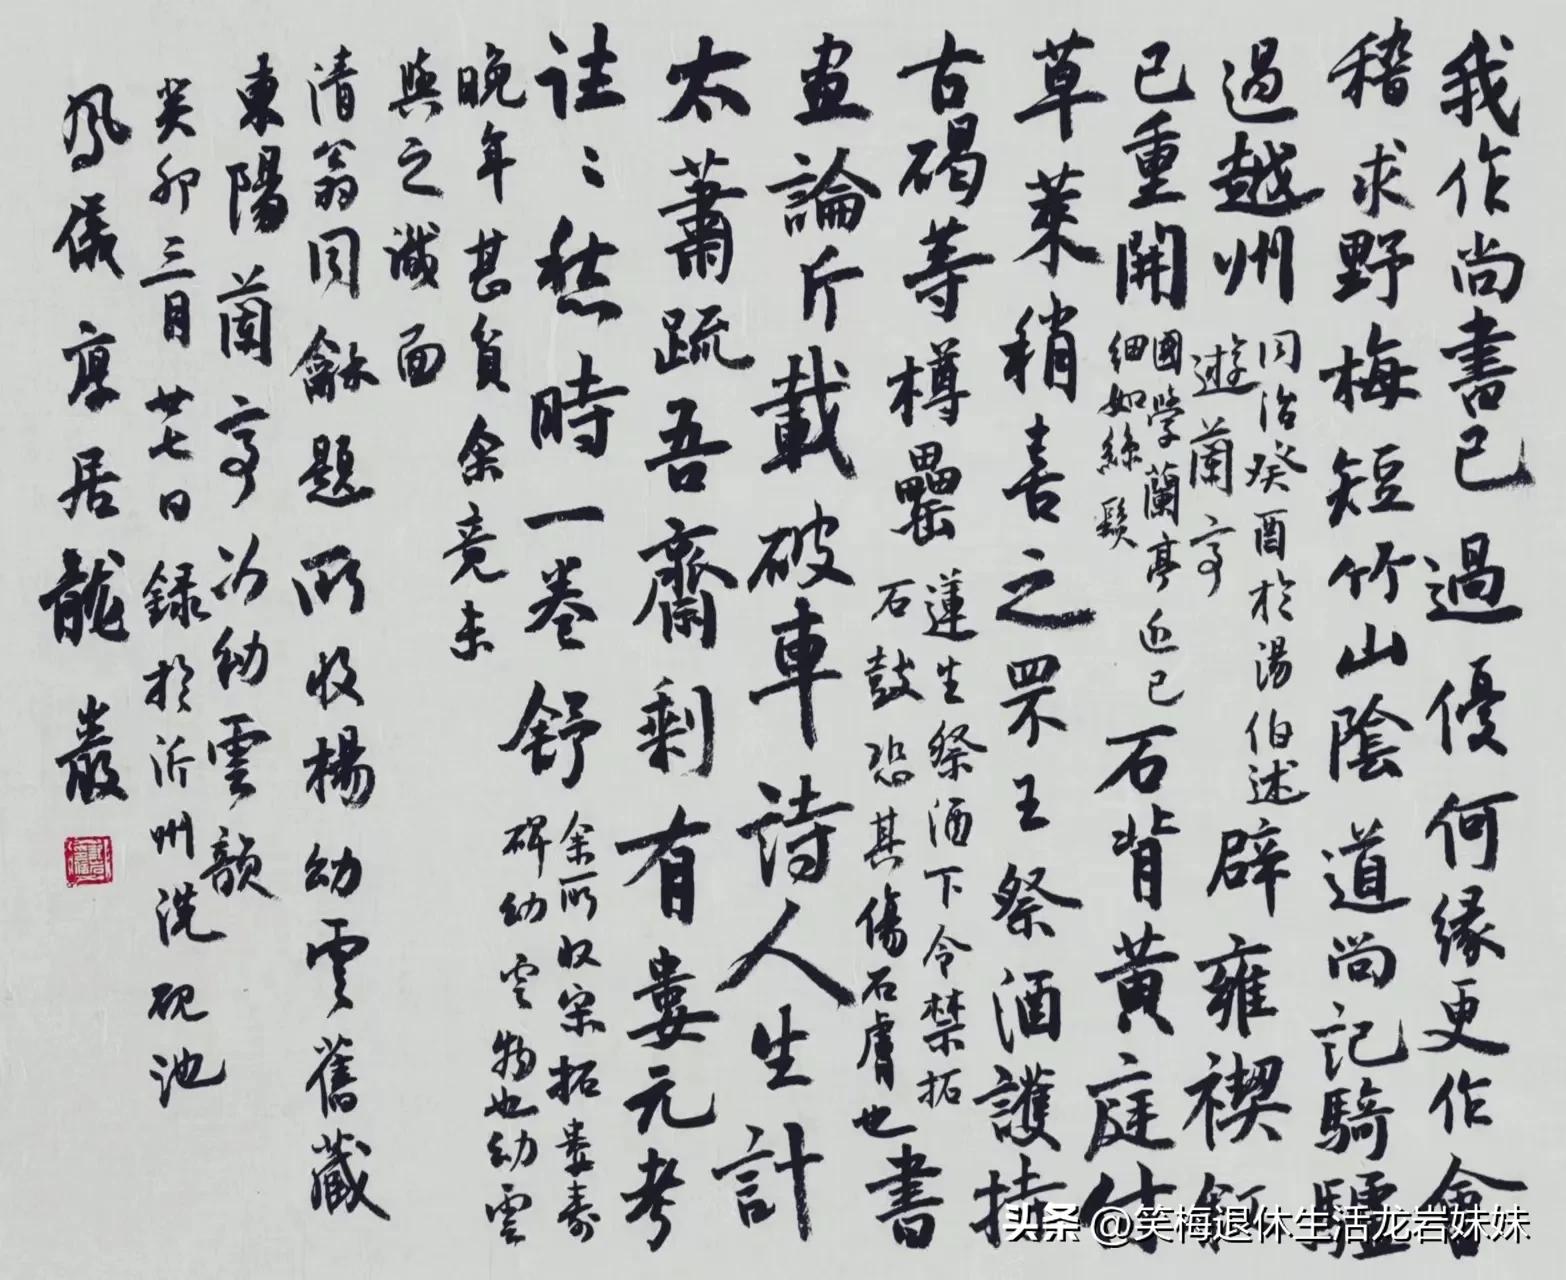 我作尚書已過優何緣更作會
稽求野梅短竹山陰道尚記騎驢
過越州
同治癸酉於湯伯述
遊蘭亭
辟雍禊飲
已重開
國學蘭亭近已
細如絲髮
石背黃庭付
草萊稍喜之罘王祭酒護持
古碣等樽罍
蓮生祭酒下令禁拓
石鼓恐其傷石膚也
書
畫論斤載破車詩人生計
太蕭疏吾齋剩有婁元考
註〻愁時一卷舒
余所收宋拓婁壽
碑幼雲物也幼雲
晚年甚貧余竟未
與之謀面
清翁同龢題所收楊幼雲舊藏
東陽蘭亭次幼雲韻
癸卯三月廿七日錄於沂州洗硯池
鳳儀 廖居龍巖
头条 @笑梅退休生活龙岩妹妹